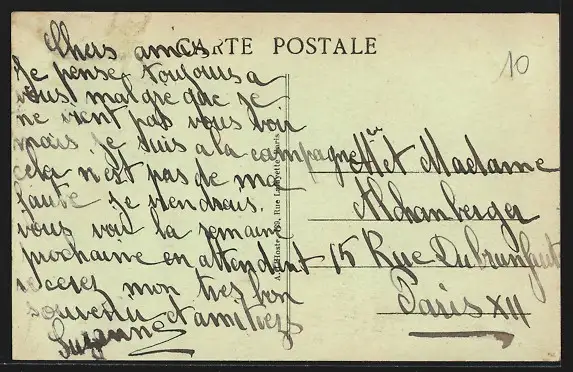 CARTE POSTALE
10
Chers amis
Je pense toujours a
vous malgre que je
ne vient pas vous voir
mais je suis a la campagne
cela n'est pas de ma
faute je viendrais
vous voir la semaine
prochaine en attendant
recevez mon tres bon
souvenir et amitiers
Suzanne
Rue Lafayette Paris
Mr et Madame
15 Rue Dubrunfaut
Paris XII